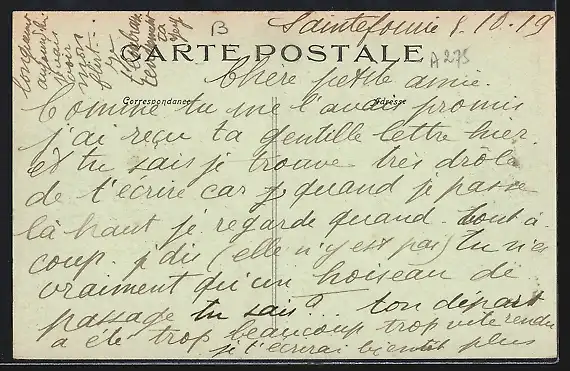 Saintefoinie 8.10.19
B
CARTE POSTALE
A 275
Chère petite amie.
Correspondance
Adresse
Comme tu me l'avais promis
j'ai reçu ta gentille lettre hier.
et tu sais je trouve très drôle
de t'écrire car quand je passe
là haut je regarde quand tout à
coup. j dis (elle n'y est pas) tu n'es
vraiment qu'un hoiseau de
passage tu sais? ton départ
a été trop beaucoup trop vite rendu
je t'écrirai bientôt plus
longuement
aujourd'hui
je vais
voir
mon